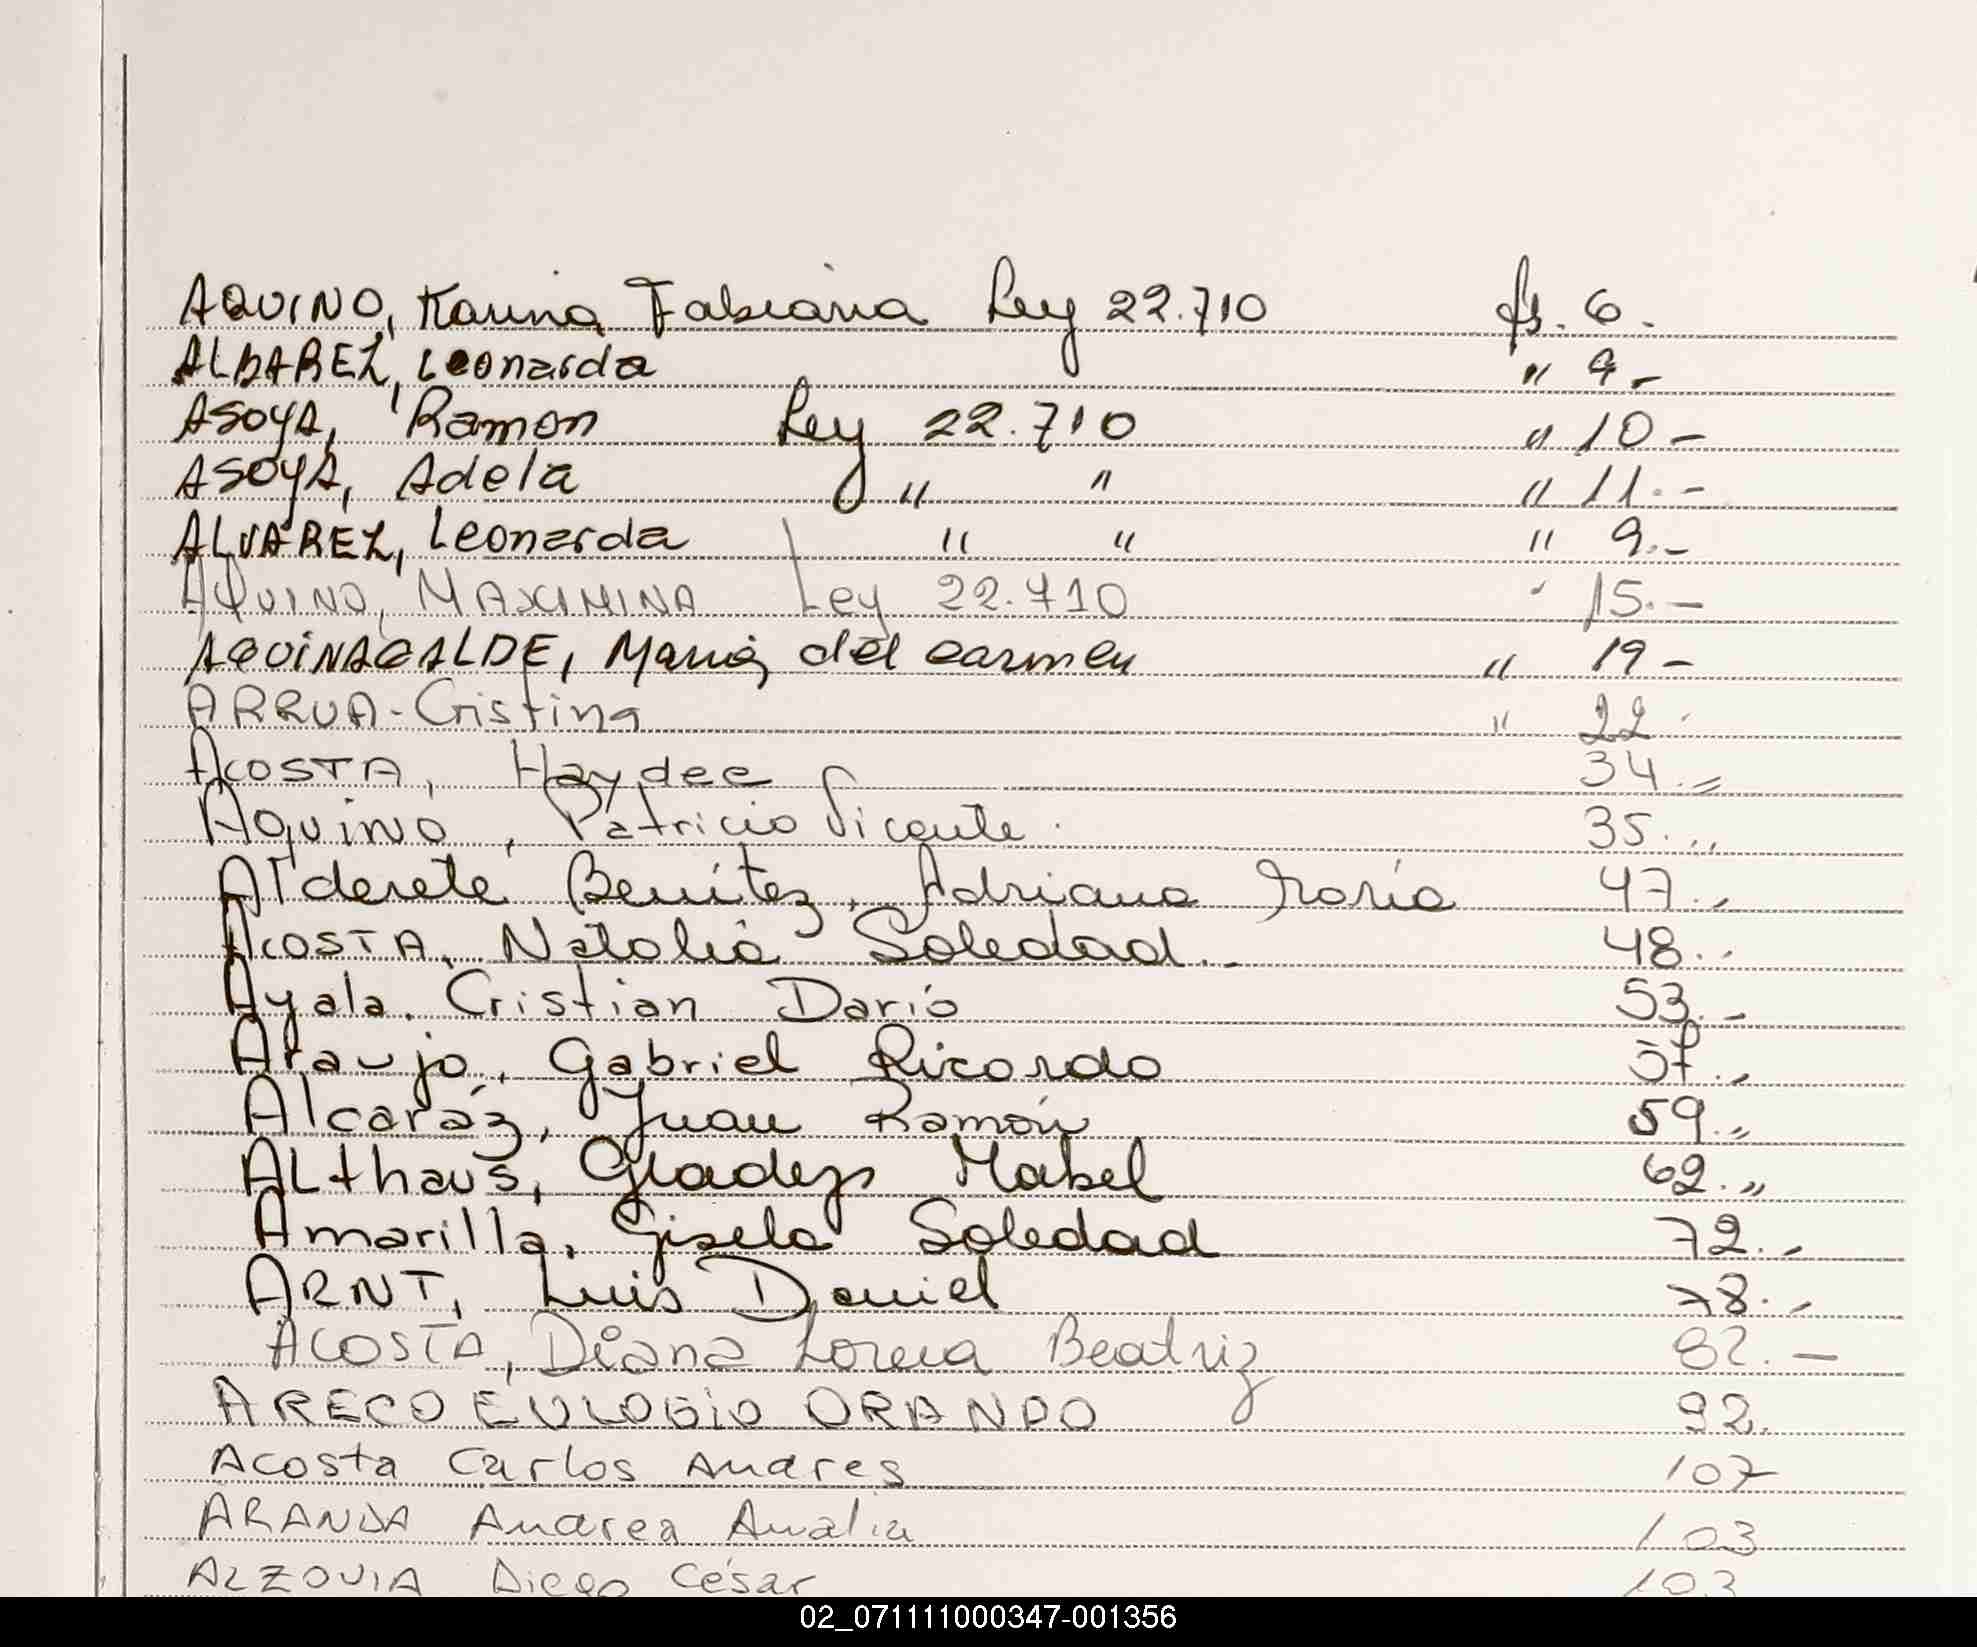 AQUINO, Karina Fabiana Ley 22.710 fs. 6.
ALBAREZ, Leonarda " 9 -
ASOYA, Ramon Ley 22.710 " 10 -
ASOYA, Adela " " " 11. -
ALVAREZ, Leonarda " " " 9. -
AQUINO, MAXIMINA Ley 22.710 " 15. -
AQUINAGALDE, Maria del Carmen " 19 -
ARRUA - Cristina " 22.
ACOSTA, Haydee 34. =
Aquino, Patricio Vicente. 35. ,,
Alderete Benitez, Adriana María 47. ,,
ACOSTA, Natalia Soledad. 48. ..
Ayala, Cristian Darío 53. -
Araujo, Gabriel Ricardo 57. ,,
Alcaráz, Juan Ramón 59. ,,
ALthaus, Gladys Mabel 62. ,,
Amarilla, Gisela Soledad 72. -
ARNT, Luis Daniel 78. -
ACOSTA, Diana Lorena Beatriz 82. —
ARECO EULOGIO ORANDO 92.
Acosta Carlos Andres 107
ARANDA Andrea Analia 103
ALZOVIA Diego César 103
02_071111000347-001356